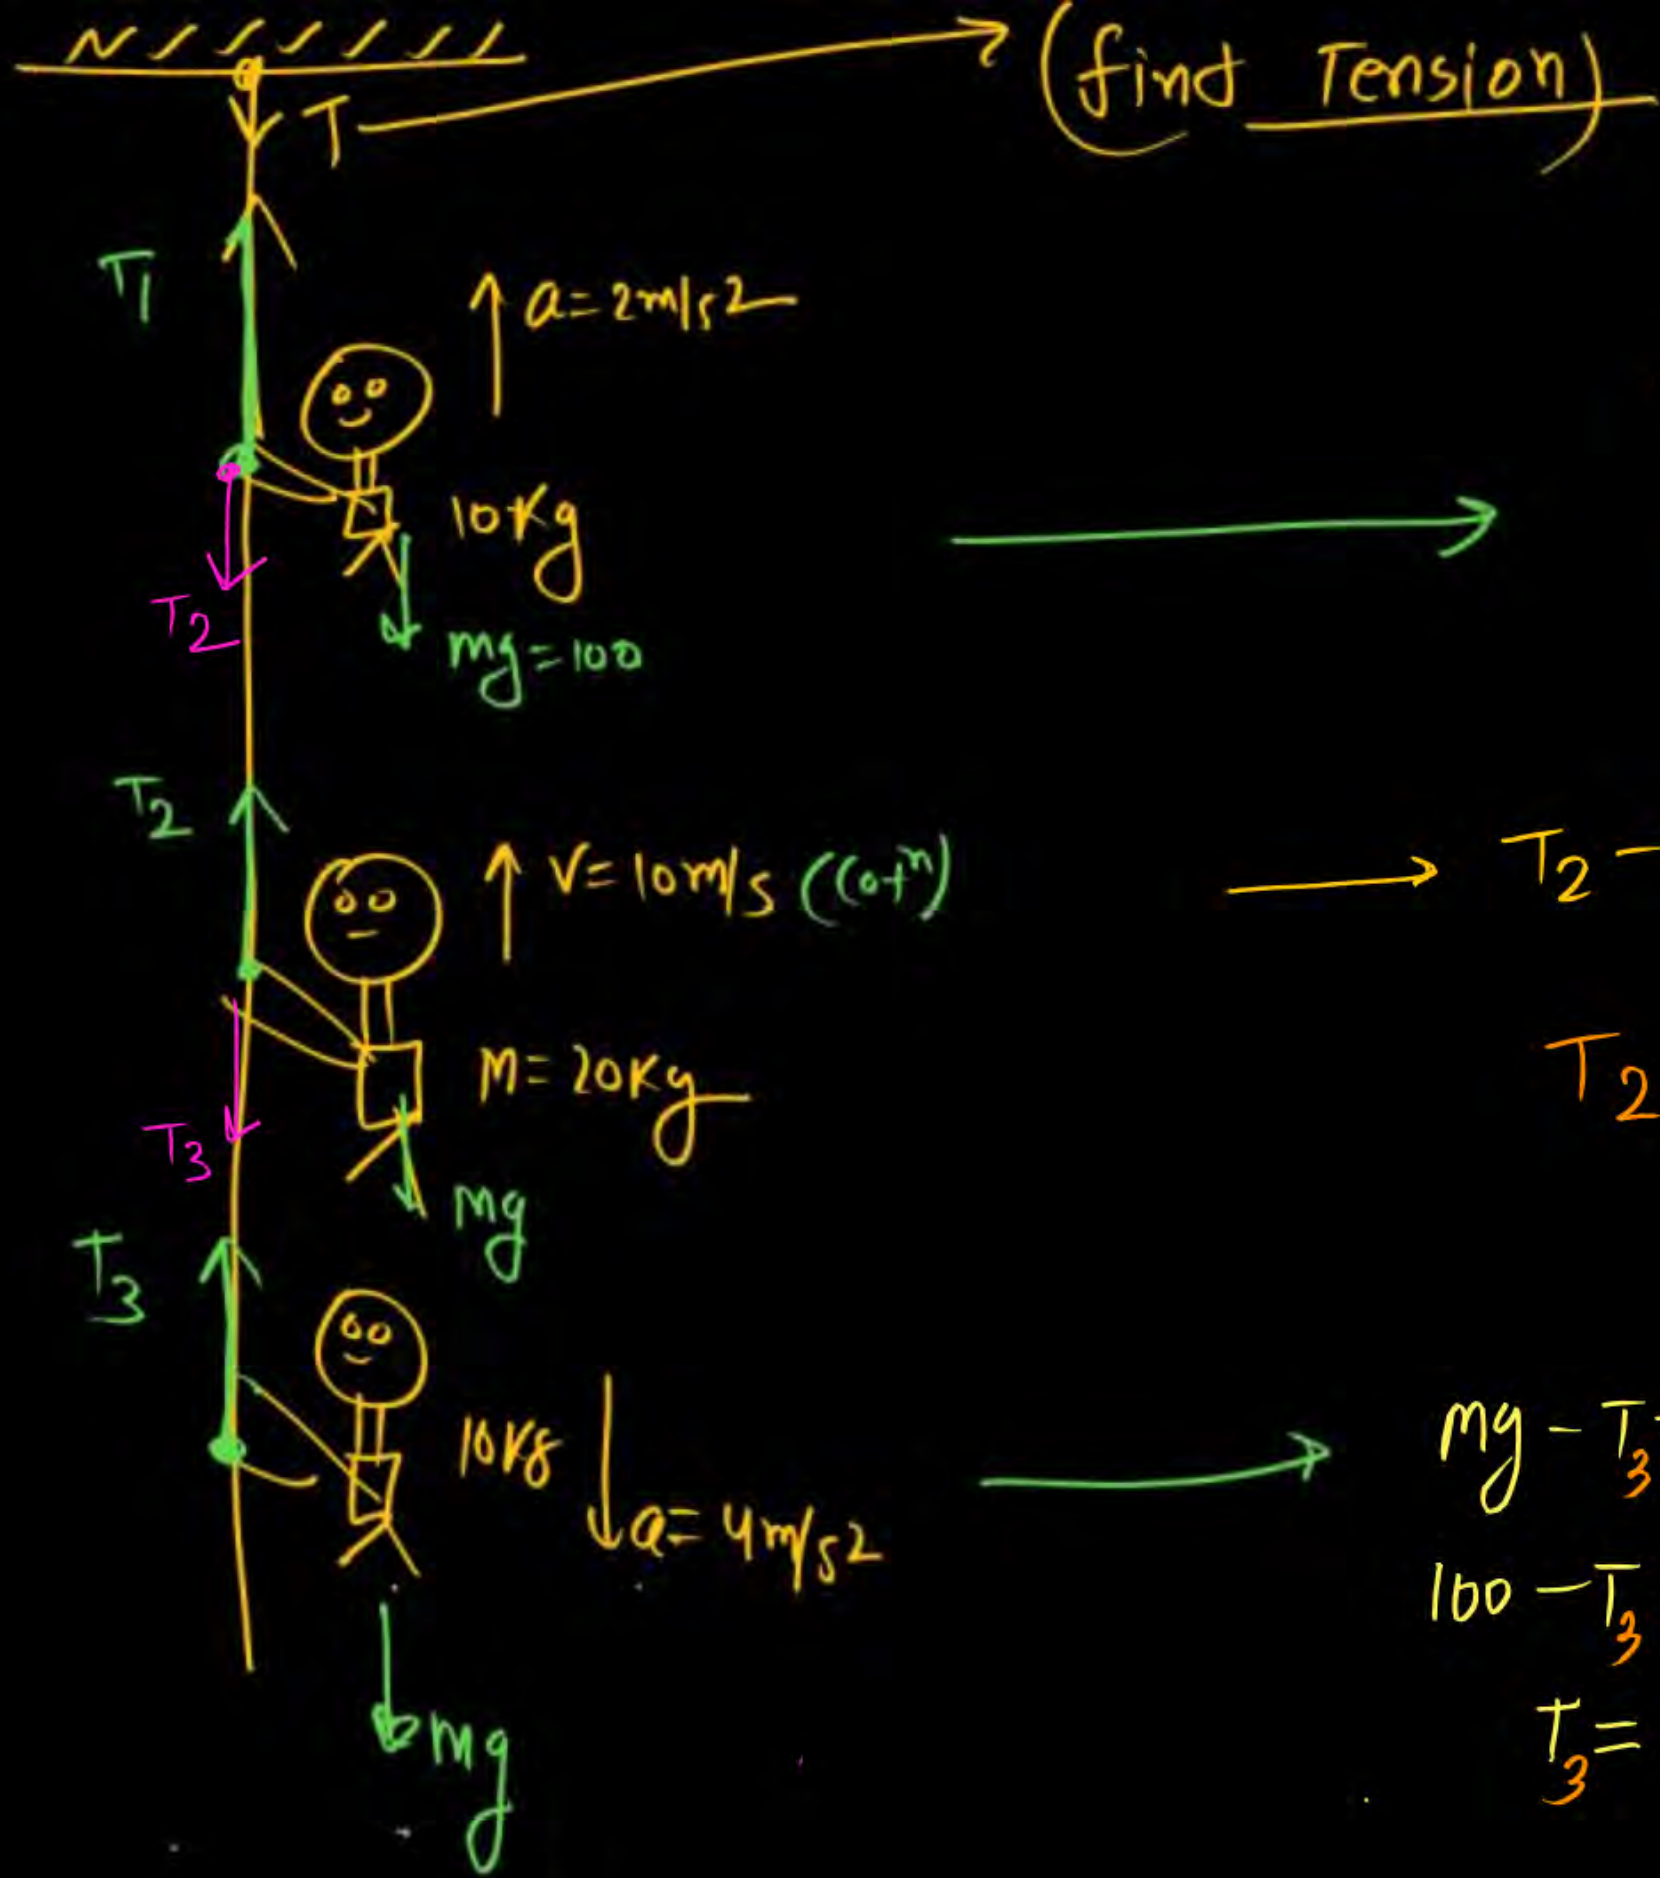 T
(find Tension)
T1
a=2m/s2
10Kg
T2
mg=100
T2
V=10m/s ((o+n)
T2 -
M=20Kg
T2
T3
mg
T3
10Kg
a=4m/s2
mg - T3
100 - T3
T3 =
mg